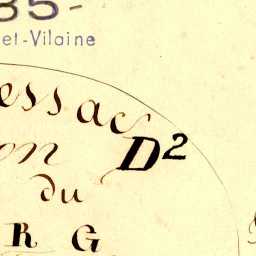 35-
et-Vilaine
essac
on D²
du
R G